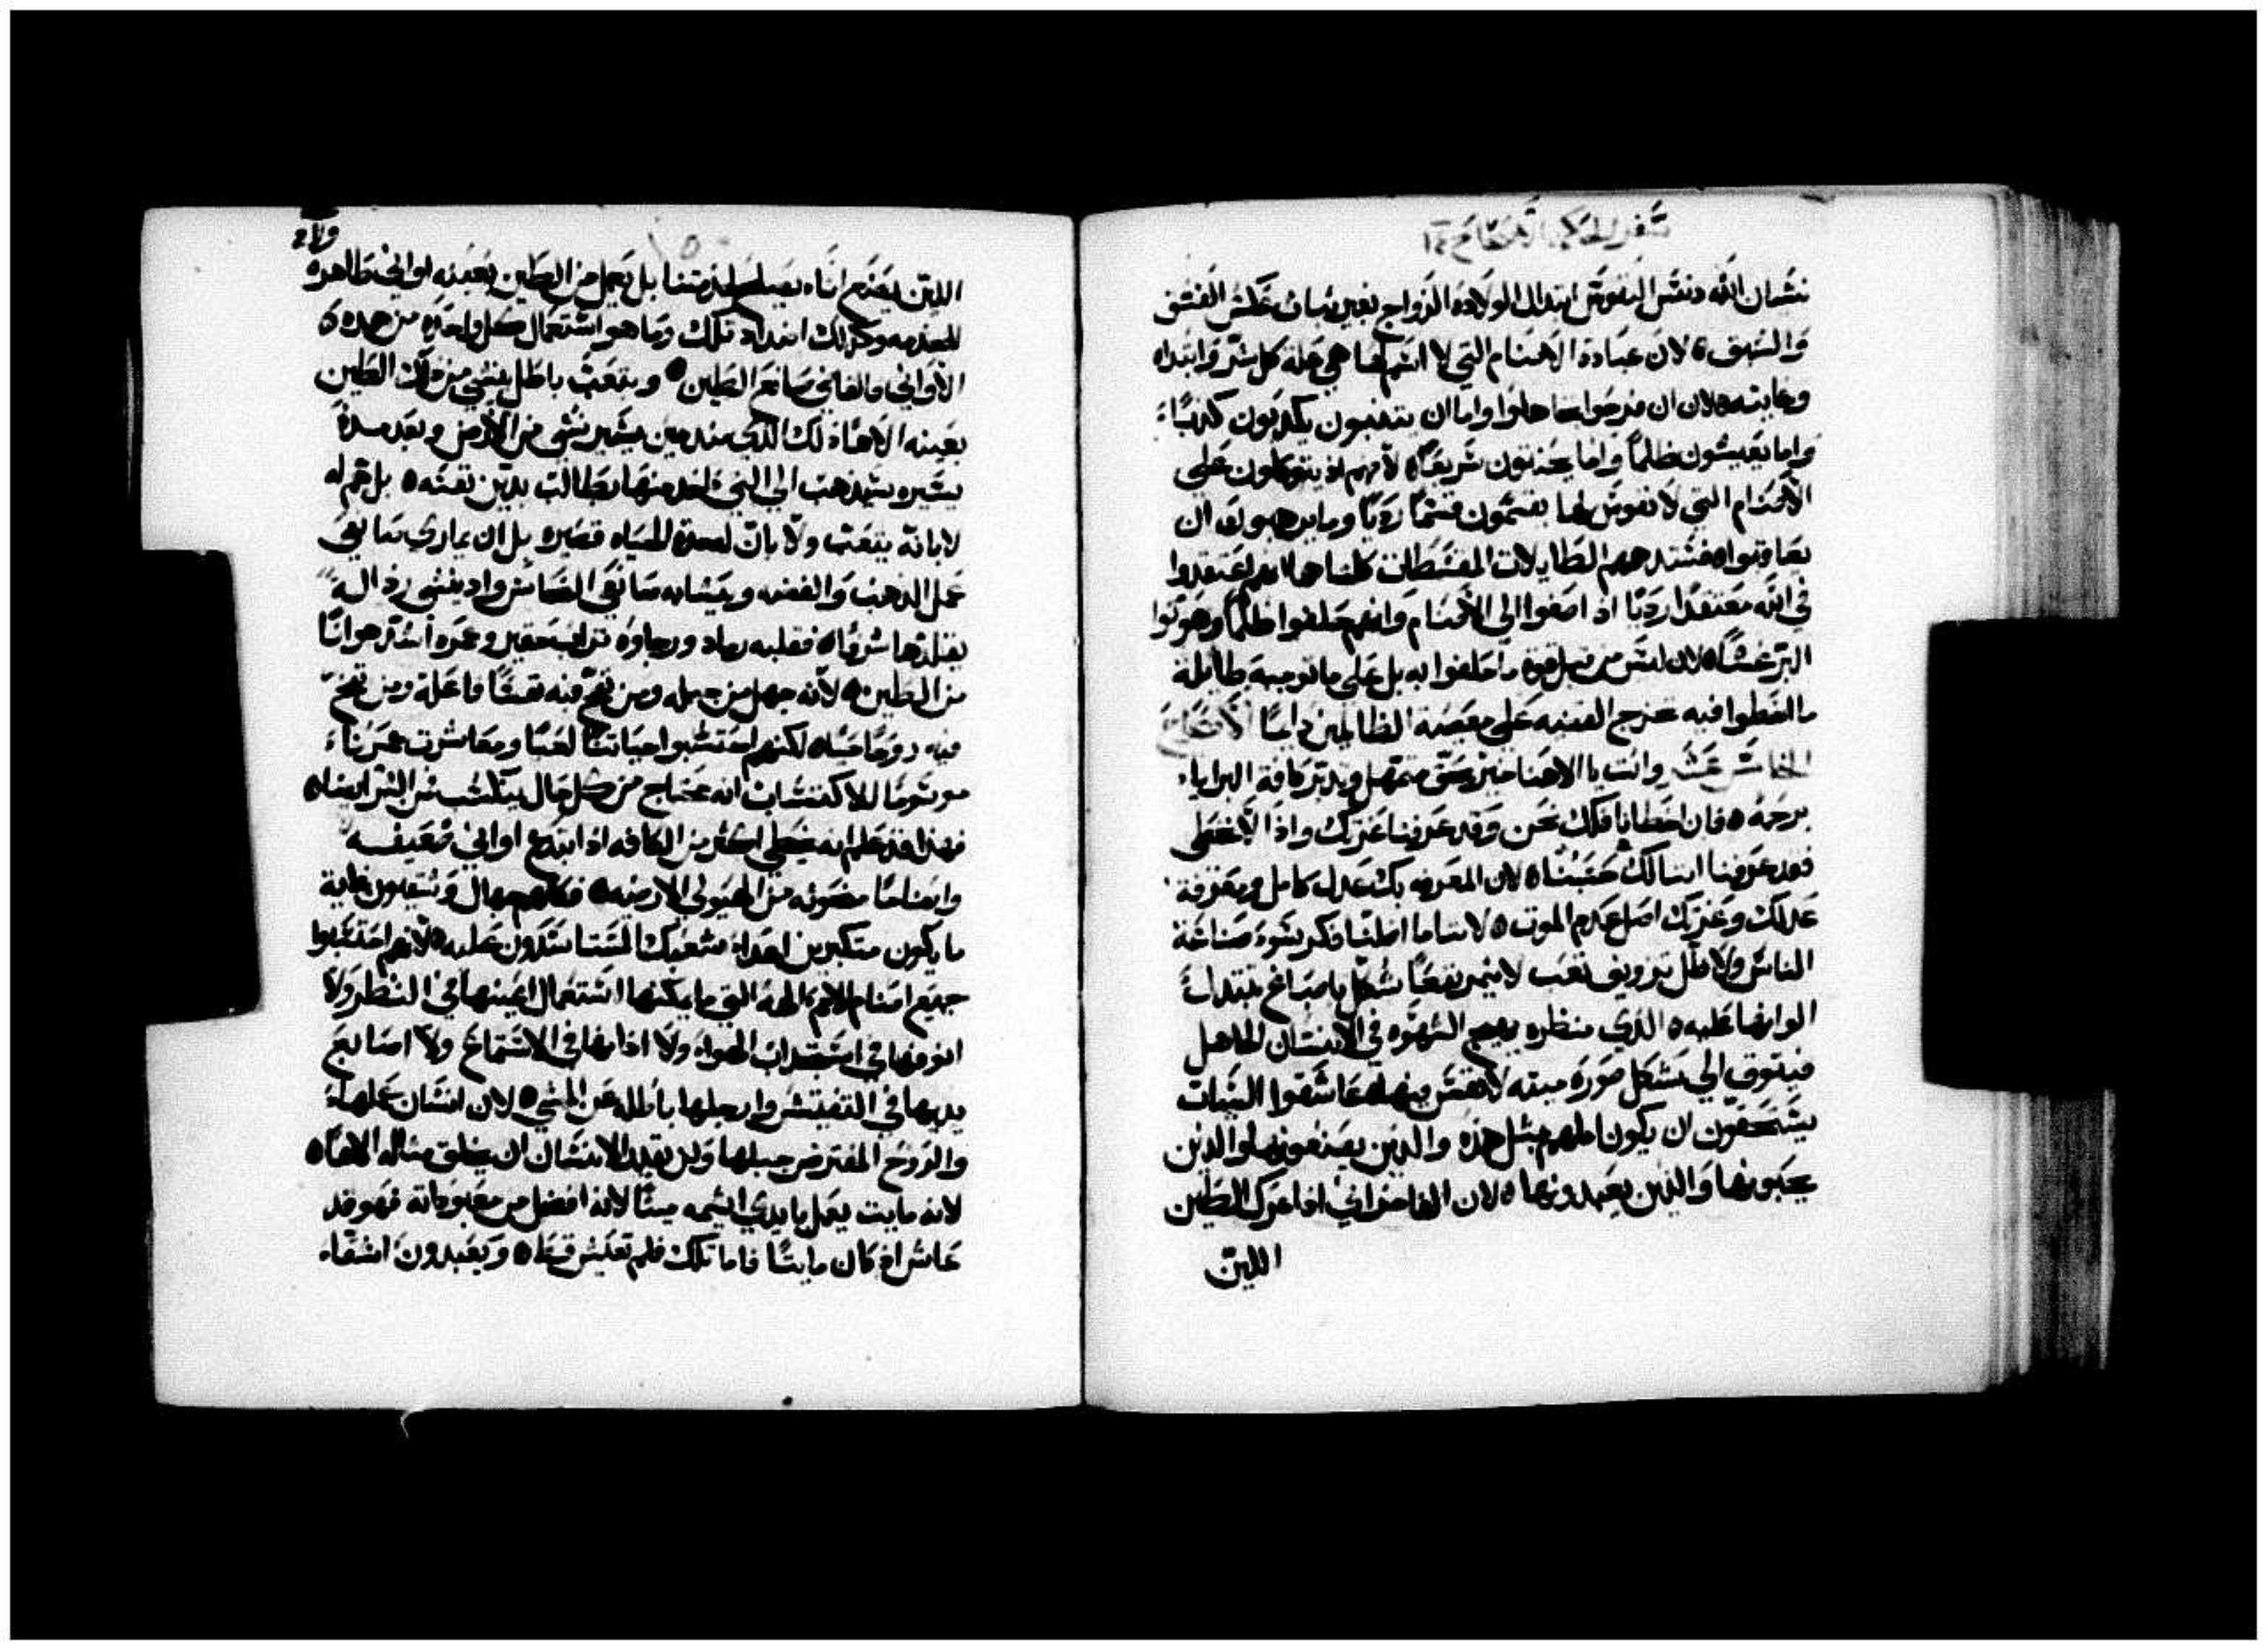 سفر الحكمة الاصحاح ١٤
نسيان الله دنس النفوس ابتدال الولادة الزواج بغير ثبات غلس الفسق
والشبق ۵ لان عبادة الاصنام التي لا اسم لها هي علة كل شر وابتداه
وغايته ۵ لان ان فرحوا جاهلوا واما ان يتنبون يكدبون كدبًا
واما يعيشون ظلمًا واما يحنتون سريعًا ۵ لانهم اذ يتوكلون على
الاصنام التي لا نفوس لها يقسمون قسمًا رديًا وما يرهبون ان
يعاقبوا ۵ فستدرهم الطايلات المقسطات كلتاهما لانهم اعتقدوا
في الله معتقدًا رديًا اذ اصغوا الى الاصنام وانهم حلفوا ظلمًا وهونوا
البر غشًا ۵ لان ليس من قبل قوة ما حلفوا به بل على ما توجبه طايلة
ما اخطوا فيه تخرج القضيه على معصية الظالمين دايمًا الاصحاح
الخامس عشر وانت يا الاهنا خير وحق متمهل وتدبر كافة البرايا
برحمة ۵ فان اخطانا فلك نحن وقد عرفنا عزتك واذا لا نخطي
فقد عرفنا اننا لك حسبنا ۵ لان المعرفه بك عدل كامل ومعرفة
عدلك وعزتك اصل عدم الموت ۵ لاننا ما اضلنا فكر بشوء صناعة
الناس ولا ظل تزويق تعب لا يثمر نفعًا شكل باصباغ مبتدلة
الوانها عليه ۵ الذي منظره يهيج الشهوه في الانسان الجاهل
فيتوق الي شكل صورة ميته لا نفس فيها ۵ عاشقوا السيات
يستحقون ان يكون املهم مثل هذه والذين يصنعونها والذين
يحبونها والذين يعبدونها ۵ لان الفاخراني اذا عرك الطين
اللين
اللين يصنع اناء يصلح لخدمتنا بل يعمل من الطين بعينه اواني طاهره
للخدمه وكذلك اضداد تلك وما هو استعمال كل واحدة من هده
الاواني فالقاضي صانع الطين ۵ وبتعب باطل ينشي من ذلك الطين
بعينه الاهًا ذلك الذي منذ حين يسير نشى من الارض وبعد مدة
يسيره يذهب الي التي اخد منها مطالب بدين نفسه ۵ بل همه
لا بانه يتعب ولا بان له مدة الحياه قصيره بل ان يماري صانعي
عمل الذهب والفضه ويشابه صانعي النحاس واد ينشى رذاله
يقلدها شرفًا ۵ فقلبه رماد ورجاوه تراب حقير وعمره اشد هوانًا
من الطين ۵ لانه جهل من جبله ومن نفخ فيه نفسًا فاعلة ومن نفخ
فيه روحًا حيًا ۵ لكنهم احتسبوا حياتنا لعبًا ومعاشرت عمرنا
موسومًا للاكتساب انه يحتاج من كل حال يكتسب من الشر ايضا ۵
فهذا قد علم انه يخطي اكثر من الكافه اذ ابتدع اواني ضعيفه
واصنامًا منحوته من الهيولي الارضيه ۵ فكلهم جهال وشقيون غاية
ما يكون متكبرين اعداء شعبك المتسا يتدون عليه ۵ لانهم احتسبوا
جميع اصنام الامم الهة التي ما يمكنها استعمال اعينها في النظر ولا
انوفها في استجداب الهواء ولا اذانها في الاستماع ولا اصابع
يديها في التفتيش وارجلها باطله عن المشي ۵ لان انسان عملها
والروح المقترض جبلها ولن يقدر الانسان ان يخلق مثاله الاهًا ۵
لانه مايت يعمل بايدي اثيمه ميتًا لانه افضل من معبوداته فهو قد
عاش اذ كان مايتًا فاما تلك فلم تعيش قط ۵ ويعبدون اشقاء